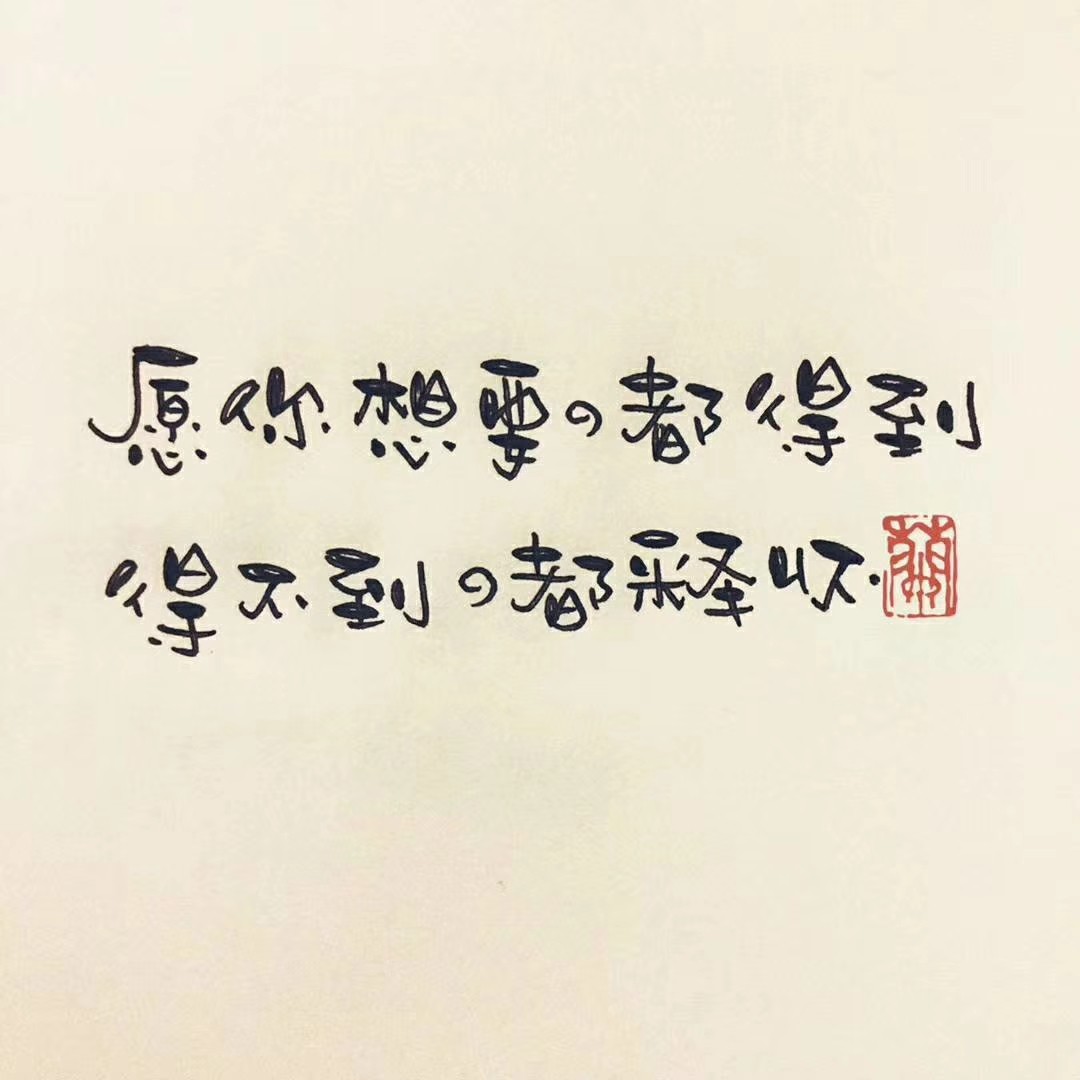 愿你想要の都得到
得不到の都释怀